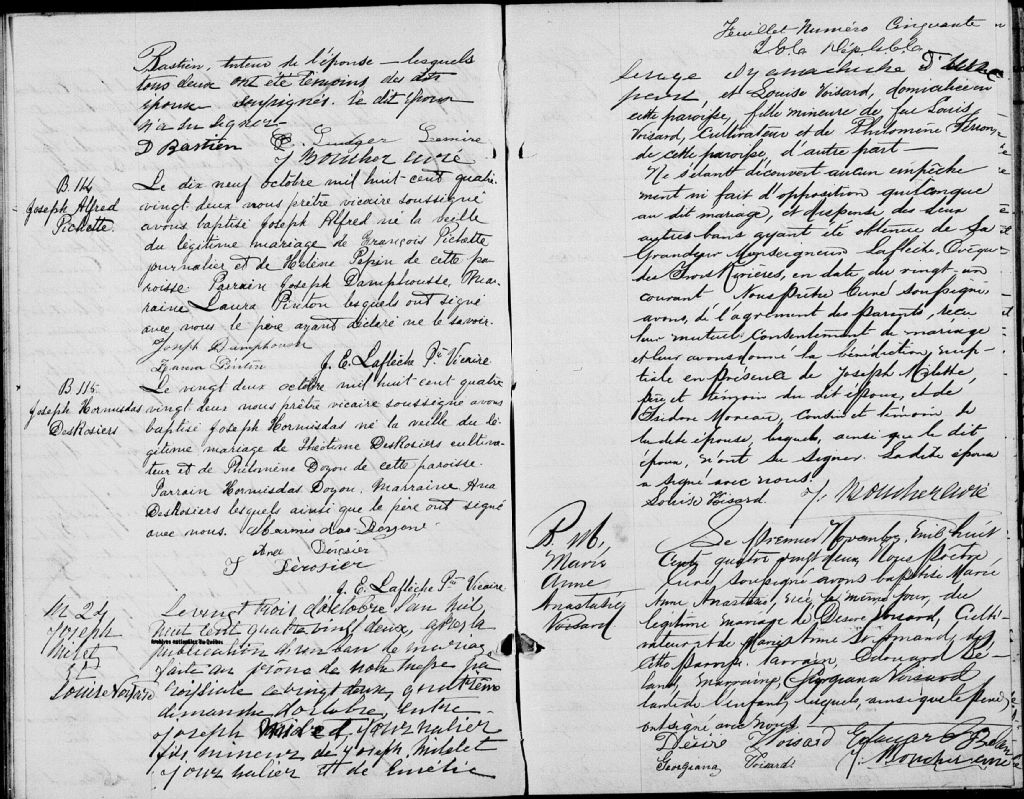 Bastien, tuteur de l'épouse – lesquels
tous deux ont été témoins des dits
époux soussignés. Le dit époux
n'a su signer –
D Bastien E. Ludger Lemire
J Boucher curé
B. 114
Joseph Alfred
Pichette
Le dix neuf octobre mil huit cent quatre
vingt deux nous prêtre vicaire soussigné
avons baptisé Joseph Alfred né la veille
du légitime mariage de François Pichette
journalier et de Hélène Pepin de cette pa
roisse. Parrain Joseph Damphousse, Mar
raine Laura Pinton lesquels ont signé
avec nous le père ayant déclaré ne le savoir.
Joseph Damphousse
Pintin
J. E. Laflèche Ptre Vicaire
B. 115
Joseph Hormisdas
DesRosiers
Le vingt deux octobre mil huit cent quatre
vingt deux nous prêtre vicaire soussigné avons
baptisé Joseph Hormisdas né la veille du lé
gitime mariage de Théotime DesRosiers cultiva
teur et de Philomène Doyon de cette paroisse.
Parrain Hormisdas Doyon. Marraine Ana
DesRosiers lesquels ainsi que le père ont signé
avec nous.
Ana
J. E. Laflèche Ptre Vicaire
M 24
Joseph
Milet
Et
Louise Voisard
Le vingt trois d'octobre l'an mil
huit cent quatre vingt deux, après la
Archives nationales du Québec
publication d'un ban de mariage
faite au prône de notre messe pa
roissiale ce vingt deux, quatrième
dimanche d'octobre, entre
Joseph Milet, Journalier
fils mineur de Joseph Milet
Journalier et de Emélie
Feuillet Numéro Cinquante
d'Yamachiche d'une
part, et Louise Voisard, domiciliée en
cette paroisse, fille mineure de feu Louis
Voisard, Cultivateur et de Philomène Ferron,
de cette paroisse, d'autre part –
Ne s'étant découvert aucun empêche
ment ni fait d'opposition quelconque
au dit mariage, et dispense des deux
autres bans ayant été obtenue de Sa
Grandeur Monseigneur Laflèche, Évêque
des Trois Rivières, en date du vingt un
courant Nous Prêtre Curé soussigné
avons, de l'agrément des parents, reçu
leur mutuel Consentement de mariage
et leur avons donné la bénédiction nup-
tiale en présence de Joseph Milette
père et témoin du dit époux, et de
Isidore Moreau, Cousin et témoin de
la dite épouse, lesquels, ainsi que le dit
époux, n'ont su signer. La dite épouse
a signé avec nous.
Louise Voisard. J. Boucher curé
B. 116,
Marie
Anne
Anastasie
Voisard
Le Premier Novembre, mil huit
Cent quatre vingt deux, Nous Prêtre
Curé, soussigné avons baptisé Marie
Anne Anastasie, née le même jour, du
légitime mariage de Désiré Voisard, Culti
vateur et de Marie Anne St Amand, de
Cette paroisse. Parrain, Edouard Bé
land, Marraine, Georgiana Voisard
tante de l'enfant, lesquels, ainsi que le père,
ont signé avec nous.
Désiré Voisard Edouard Belan
Georgiana Voisard J. Boucher curé